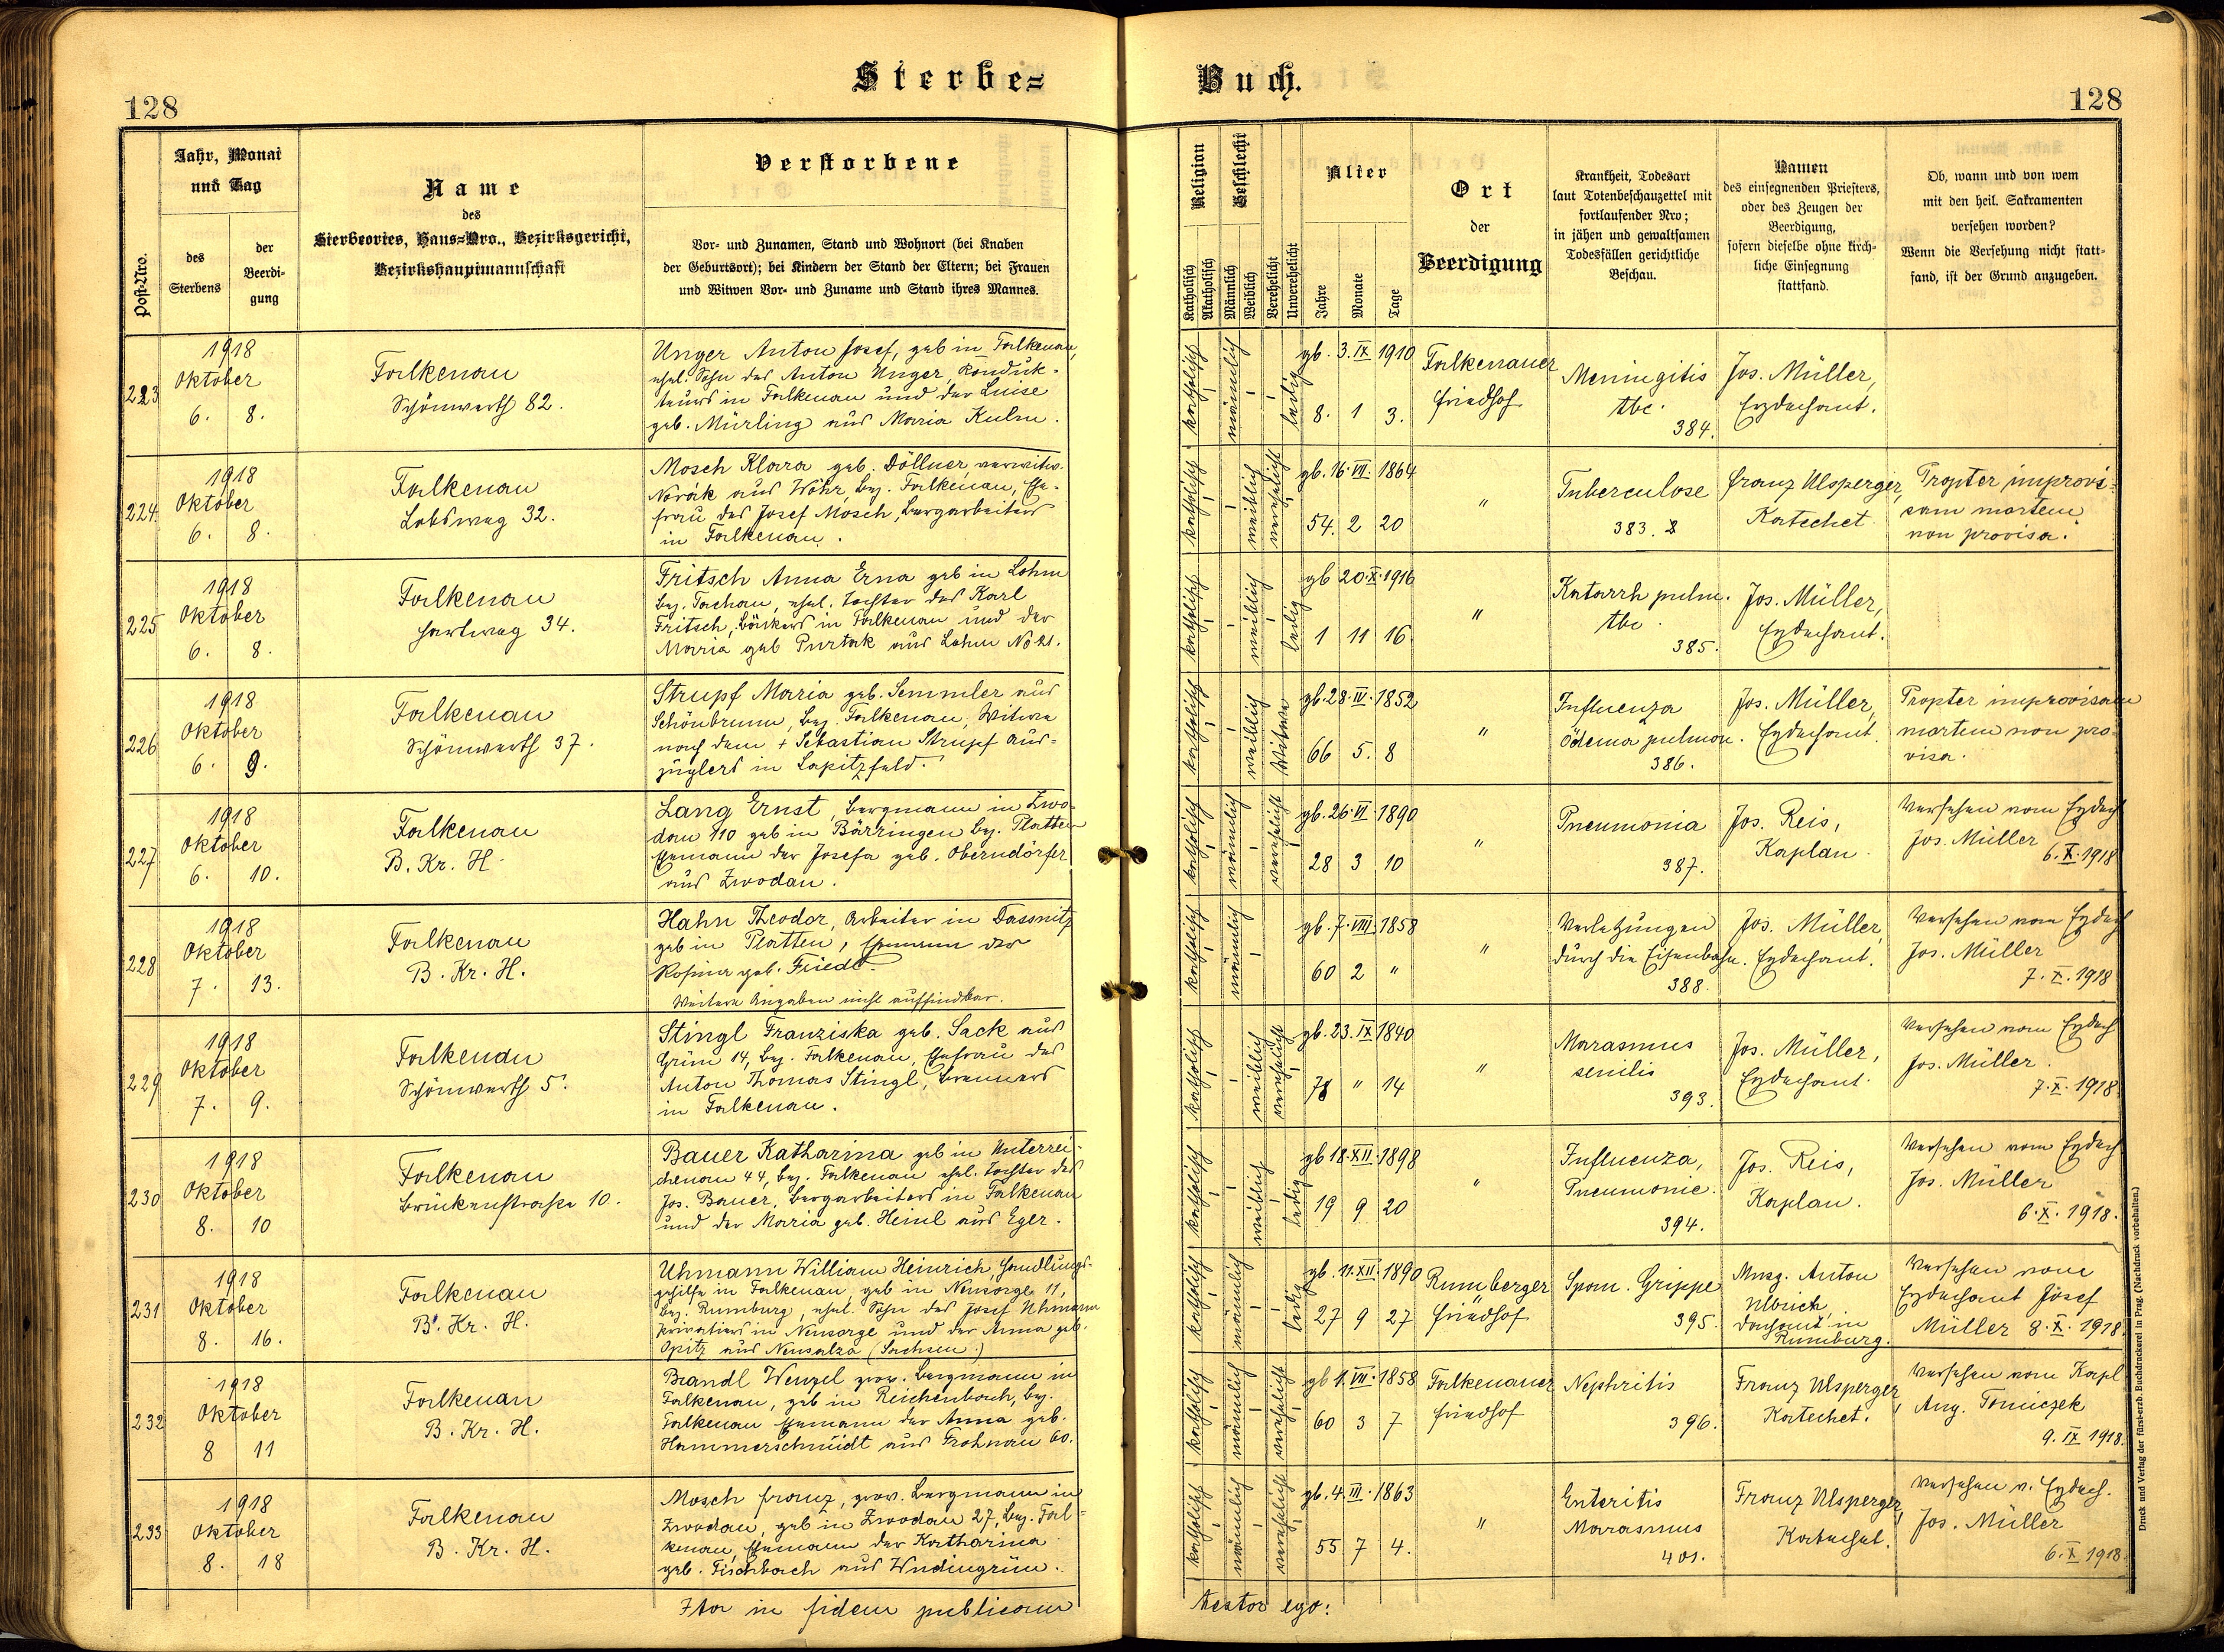 Sterbe=
Buch.
128
128
Post-Nro.
Jahr, Monat
und Tag
des
Sterbens
der
Beerdi-
gung
Name
des
Sterbeortes, Haus=Nro., Bezirksgericht,
Bezirkshauptmannschaft
Verstorbene
Vor- und Zunamen, Stand und Wohnort (bei Knaben
der Geburtsort); bei Kindern der Stand der Eltern; bei Frauen
und Witwen Vor- und Zuname und Stand ihres Mannes.
Religion
Katholisch
Akatholisch
Geschlecht
Männlich
Weiblich
Verehelicht
Unverehelicht
Alter
Jahre
Monate
Tage
Ort
der
Beerdigung
Krankheit, Todesart
laut Totenbeschauzettel mit
fortlaufender Nro;
in jähen und gewaltsamen
Todesfällen gerichtliche
Beschau.
Namen
des einsegnenden Priesters,
oder des Zeugen der
Beerdigung,
sofern dieselbe ohne kirch-
liche Einsegnung
stattfand.
Ob, wann und von wem
mit den heil. Sakramenten
versehen worden?
Wenn die Versehung nicht statt-
fand, ist der Grund anzugeben.
223
1918
Oktober
6. 8.
Falkenau
Schönwerth 82.
Unger Anton Josef, geb in Falkenau,
ehel. Sohn des Anton Unger, Konduk-
teurs in Falkenau und der Luise
geb. Mürling aus Maria Kulm.
katholisch
männlich
ledig
gb. 3. IX 1910
8. 1 3.
Falkenauer
Friedhof
Meningitis
tbc.
384.
Jos. Müller,
Erzdechant.
224.
1918
Oktober
6. 8.
Falkenau
Lobsweg 32.
Mosch Klara geb. Döllner verwitw.
Novák aus Wöhr, bez. Falkenau, Ehe-
frau des Josef Mosch, Bergarbeiters
in Falkenau.
katholisch
weiblich
verehelicht
gb. 16. VII. 1864
54. 2 20
"
Tuberculose
383.
Franz Ulsperger,
Katechet
Propter improvi-
sam mortem
non provisa.
225
1918
Oktober
6. 8.
Falkenau
Hartweg 34.
Fritsch Anna Erna geb in Lohm
bez. Tachau, ehel. Tochter des Karl
Fritsch, Bäckers in Falkenau und der
Maria geb Purtak aus Lohm No 21.
katholisch
weiblich
ledig
gb 20. X. 1916
1 11 16.
"
Katarrh pulm.
tbc.
385.
Jos. Müller,
Erzdechant.
226
1918
Oktober
6. 9.
Falkenau
Schönwerth 37.
Strupf Maria geb. Semmler aus
Schönbrunn, bez. Falkenau, Witwe
nach dem + Sebastian Strupf Aus-
züglers in Lapitzfeld.
katholisch
weiblich
Witwe
66 5. 8
"
Influenza
Ödema pulmon.
386.
Jos. Müller,
Erzdechant.
Propter improvisam
mortem non pro-
visa.
227
1918
Oktober
6. 10.
Falkenau
B. Kr. H.
Lang Ernst, Bergmann in Zwo-
dau 110 geb in Bärringen bez. Platten
Ehemann der Josefa geb. Oberndörfer
aus Zwodau.
katholisch
männlich
verehelicht
gb. 26. VI. 1890
28 3 10
"
Pneumonia
387.
Jos. Reis,
Kaplan.
Versehen vom Erzdech
Jos. Müller
6. X. 1918
228
1918
Oktober
7. 13.
Falkenau
B. Kr. H.
Hahn Theodor, Arbeiter in Dassnitz
geb in Platten, Ehemann der
Rosina geb. Friedl.
Weitere Angaben nicht auffindbar.
katholisch
männlich
gb. 7. VIII. 1858
60 2 "
"
Verletzungen
durch die Eisenbahn.
388.
Jos. Müller,
Erzdechant.
Versehen vom Erzdech
Jos. Müller
7. X. 1918
229
1918
Oktober
7. 9.
Falkenau
Schönwerth 5.
Stingl Franziska geb. Sack aus
Grün 14, bez. Falkenau, Ehefrau des
Anton Thomas Stingl, Brenners
in Falkenau.
katholisch
weiblich
verehelicht
gb. 23. IX 1840
78 " 14
"
Marasmus
senilis
393.
Jos. Müller,
Erzdechant.
Versehen vom Erzdech
Jos. Müller.
7. X. 1918
230
1918
Oktober
8. 10
Falkenau
Brückenstrasse 10.
Bauer Katharina geb in Unterrei-
chenau 44, bez. Falkenau ehel. Tochter des
Jos. Bauer, Bergarbeiters in Falkenau
und der Maria geb. Heinl aus Eger.
katholisch
weiblich
ledig
gb 18. XII. 1898
19 9 20
"
Influenza,
Pneumonie.
394.
Jos. Reis,
Kaplan.
Versehen vom Erzdech
Jos. Müller
6. X. 1918.
231
1918
Oktober
8. 16.
Falkenau
B. Kr. H.
Uhmann William Heinrich, Handlungs-
gehilfe in Falkenau, geb in Neusorge 11,
bez. Rumburg, ehel. Sohn des Josef Uhmann
Privatiers in Neusorge und der Anna geb.
Opitz aus Neusalza (Sachsen.)
katholisch
männlich
ledig
gb. 11. XII. 1890
27 9 27
Rumberger
Friedhof
Span. Grippe
395.
Msg. Anton
Ulbrich,
Dechant in
Rumburg.
Versehen vom
Erzdechant Josef
Müller 8. X. 1918
232
1918
Oktober
8 11
Falkenau
B. Kr. H.
Brandl Wenzel prov. Bergmann in
Falkenau, geb in Reichenbach, bez.
Falkenau Ehemann der Anna geb.
Hammerschmidt aus Frohnau 60.
katholisch
männlich
verehelicht
gb 1. VII. 1858
60 3 7
Falkenauer
Friedhof
Nephritis
396.
Franz Ulsperger,
Katechet.
Versehen vom Kapl
Ang. Tomiczek
9. IX 1918.
233
1918
Oktober
8. 18
Falkenau
B. Kr. H.
Mosch Franz, prov. Bergmann in
Zwodau, geb in Zwodau 27, bez. Fal-
kenau, Ehemann der Katharina
geb. Fischbach aus Wudingrün.
katholisch
männlich
verehelicht
gb. 4. III. 1863
55 7 4.
"
Enteritis
Marasmus
401.
Franz Ulsperger,
Katechet.
Versehen v. Erzdech.
Jos. Müller
6. X 1918.
Ita in fidem publicam
testor ego:
Druck und Verlag der fürst-erzb. Buchdruckerei in Prag. (Nachdruck vorbehalten.)